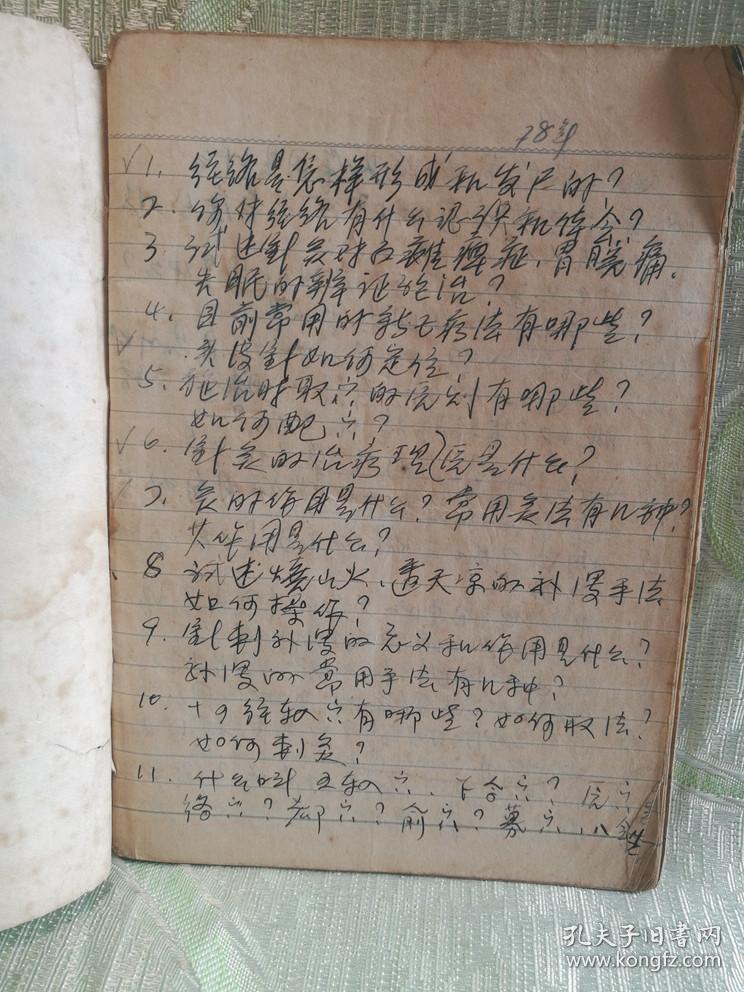 78年
√1. 经络是怎样形成和发尸的?
2. 你对经络有什么认识和体会?
3 试述针灸对 痿症、胃脘痛、
失眠的辨证论治?
4. 目前常用的新 疗法有哪些?
头皮针如何定位?
5. 证治时取穴的原则有哪些?
如何配穴?
√6. 针灸的治疗 原是什么?
7. 灸的作用是什么?常用灸法有几种?
其作用是什么?
8 试述烧山火、透天凉的补浸手法
如何操作?
9. 针刺补浸的意义和作用是什么?
补浸的常用手法有几种?
10. 十四经 穴有哪些?如何取法?
如何刺灸?
11. 什么叫五 穴、下合穴?原穴
络穴?郄穴?俞穴?募穴、八会
孔夫子旧书网
www.kongfz.com